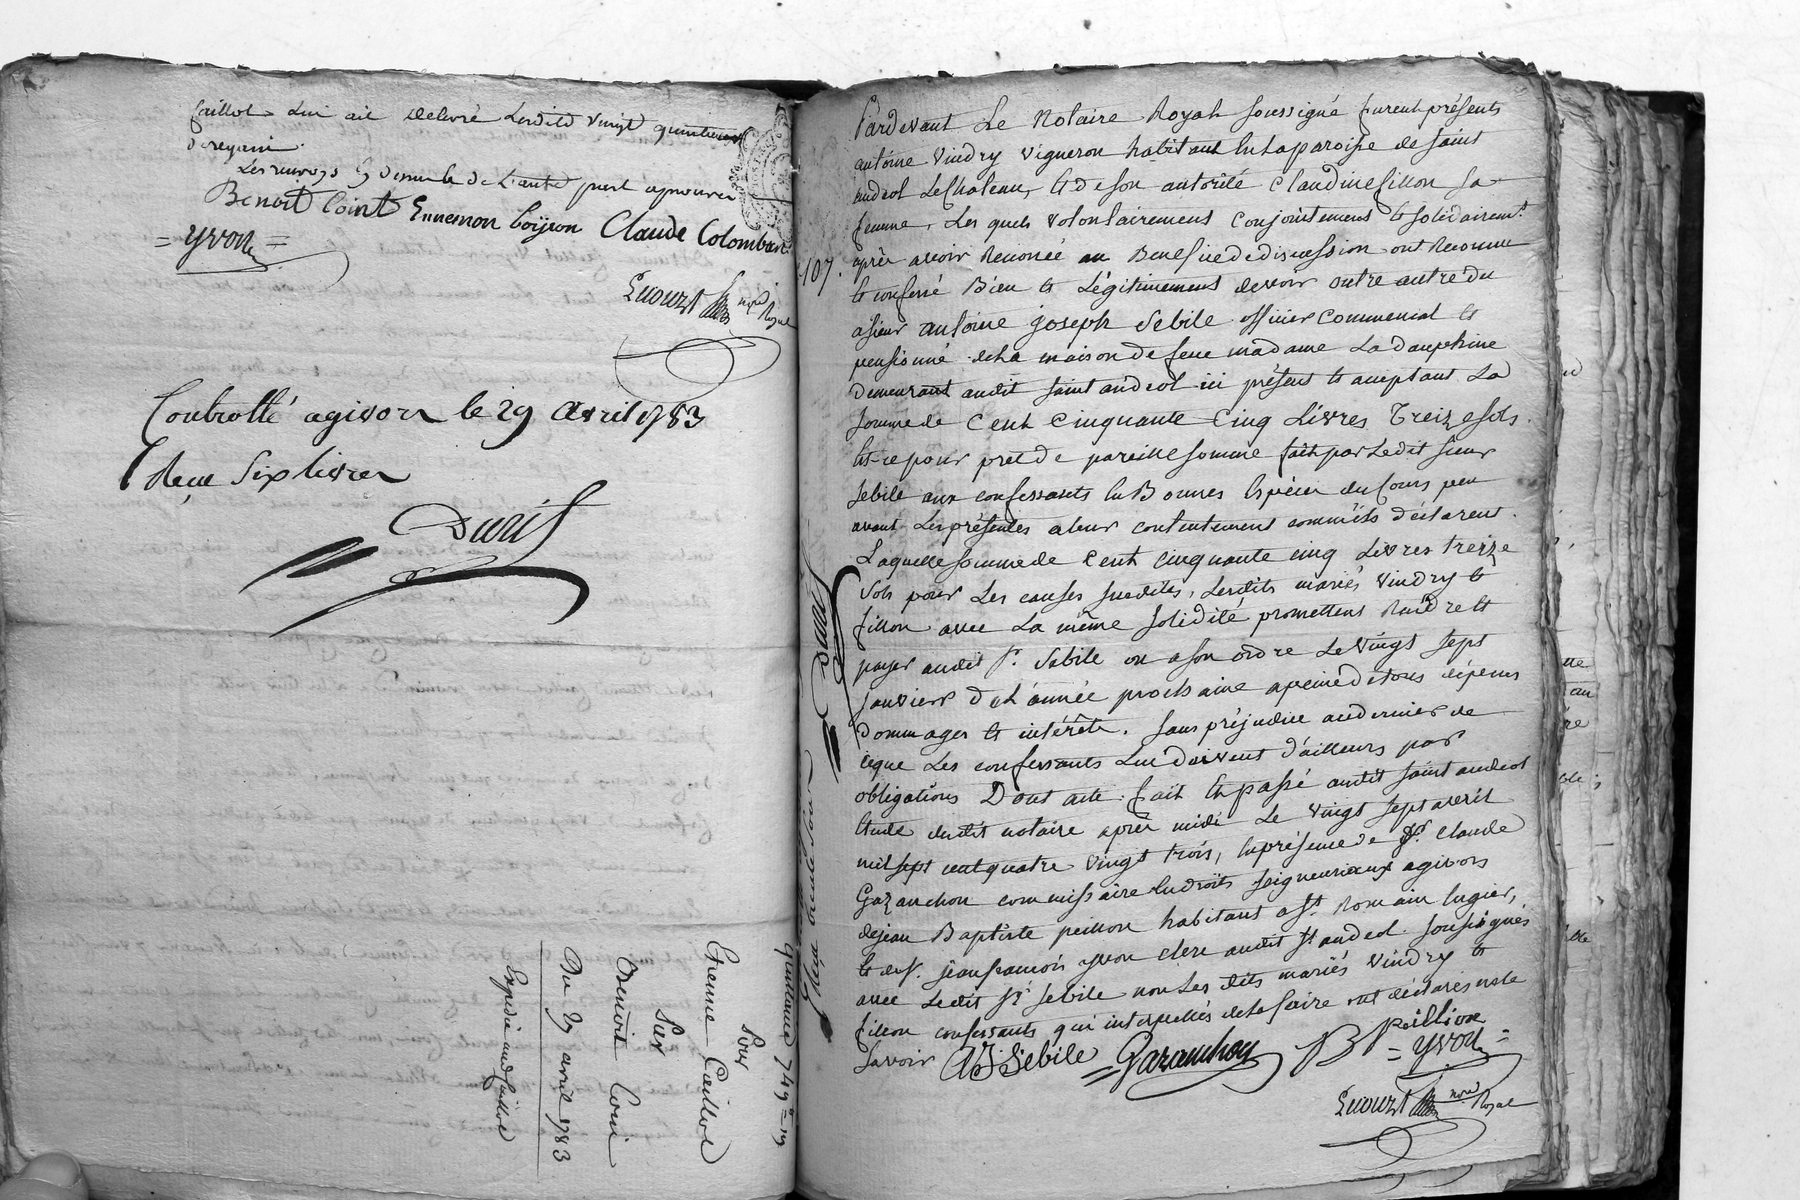 Caillot Lui ait delivré Lesdits vingt quinteaux
Benoit Coint Ennemon boyjron Claude Colomban
= yvon =
Enouzt nore Royal
Controllé agivors le 29 avril 1783
Reçu Six livres
Duril
Quittance 749 = 19
Pour
Etienne Caillot
Sur
Benoit Coint
Du 27 avril 1783
Expedié aud. Caillot
107.
Pardevant Le Notaire Royal soussigné furent présents
antoine Vindry Vigneron habitant En La paroisse de saint
andeol Le Chateau, & de son autorité Claudine fillon sa
femme, Les quels volontairement Conjointement & solidairemt.
après avoir Renoncé au Benefice de discussion ont Reconnu
& confessé Bien & Légitimement devoir outre autre du
a sieur antoine joseph Sebile officier Commensal &
pensionné de La maison de feue madame La dauphine
Demeurant audit saint andeol ici présent & acceptant La
somme de Cent Cinquante Cinq Livres Treize sols.
& ce pour pret de pareille somme fait par Ledit sieur
Sebile aux confessants En Bonnes Espèces du Cours peu
avant Les présentes a leur contentement comm'ils déclarent.
Laquelle somme de Cent Cinquante cinq Livres treize
Sols pour Les causes susdites, Lesdits mariés Vindry &
fillon avec La même solidité, promettent Rendre &
payer audit sr. Sebile ou a son ordre Le vingt sept
janvier de L'année prochaine a peine de tous dépens
Dommages & intérêts. Sans préjudice audernier de
ceque Les confessants Lui doivent d'ailleurs par
obligations Dont acte. fait & passé audit saint andeol
Etude dudit notaire après midi Le Vingt sept avril
mil sept cent quatre vingt trois, En présence de Sr. Claude
Gazanchon commissaire En droits seigneuriaux agivors
de jean Baptiste peillon habitant a St. Romain
& de sr. jean françois yvon clerc audit St andeol. soussignés
avec Ledit Sr. Sebile non Les dits mariés Vindry &
fillon confessants qui interpellés de Le faire ont déclarés ne le
Savoir AJ Sebile =Gazanchon BPeillion
= yvon =
Enouzt nore Royal